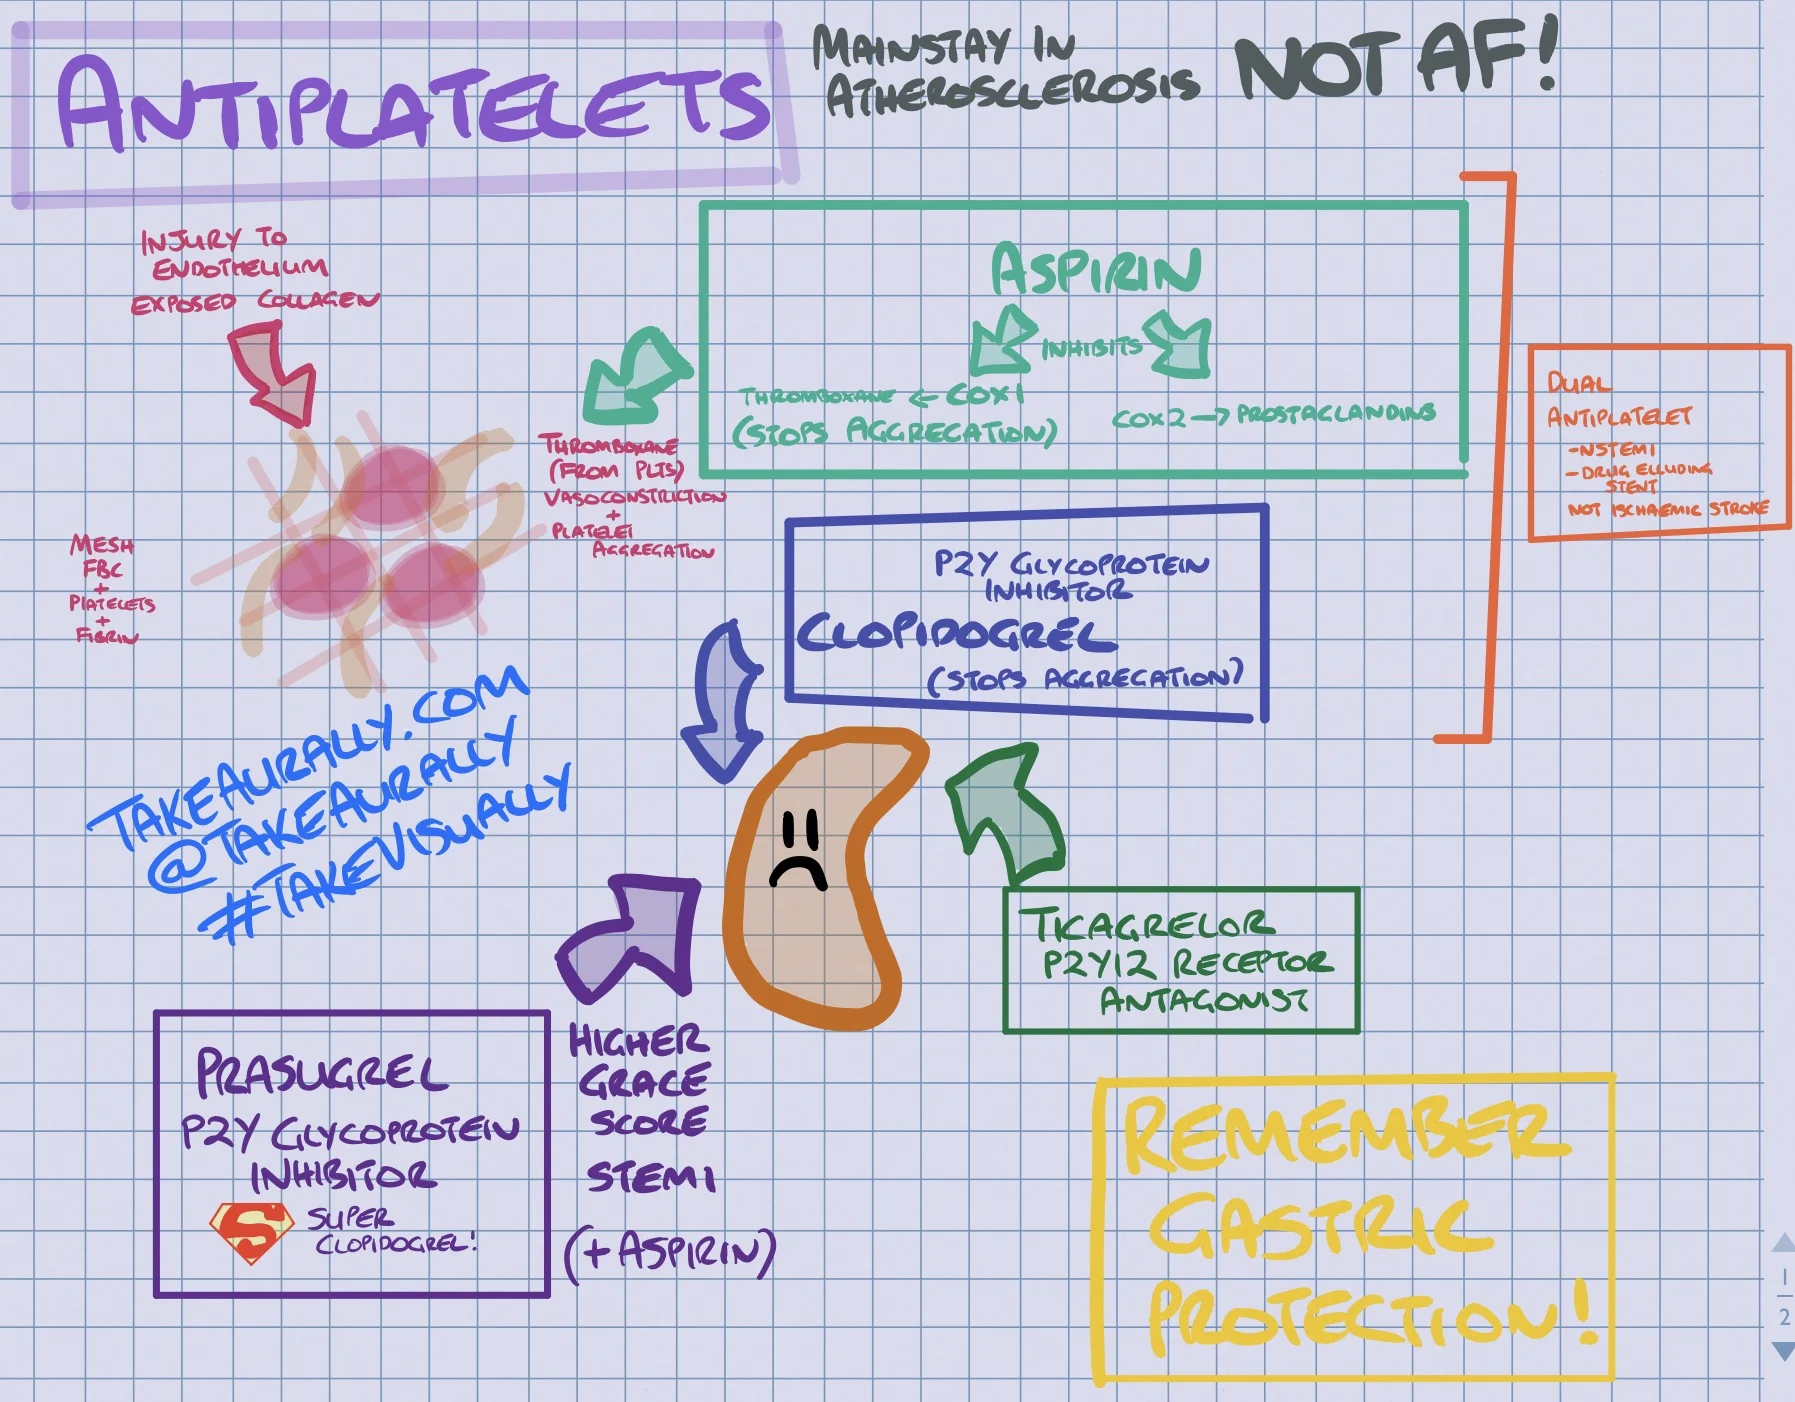 ANTIPLATELETS
MAINSTAY IN
ATHEROSCLEROSIS
NOT AF!
INJURY TO
ENDOTHELIUM
EXPOSED COLLAGEN
MESH
FBC
+
PLATELETS
+
FIBRIN
THROMBOXANE
(FROM PLTS)
VASOCONSTRICTION
+
PLATELET
AGGREGATION
ASPIRIN
INHIBITS
THROMBOXANE ← COX1
(STOPS AGGREGATION)
COX2 → PROSTAGLANDINS
DUAL
ANTIPLATELET
-NSTEMI
-DRUG ELLUDING
STENT
NOT ISCHAEMIC STROKE
P2Y GLYCOPROTEIN
INHIBITOR
CLOPIDOGREL
(STOPS AGGREGATION)
TAKEAURALLY.COM
@TAKEAURALLY
#TAKEVISUALLY
TICAGRELOR
P2Y12 RECEPTOR
ANTAGONIST
PRASUGREL
P2Y GLYCOPROTEIN
INHIBITOR
S
SUPER
CLOPIDOGREL!
HIGHER
GRACE
SCORE
STEMI
(+ASPIRIN)
REMEMBER
GASTRIC
PROTECTION!
1
2